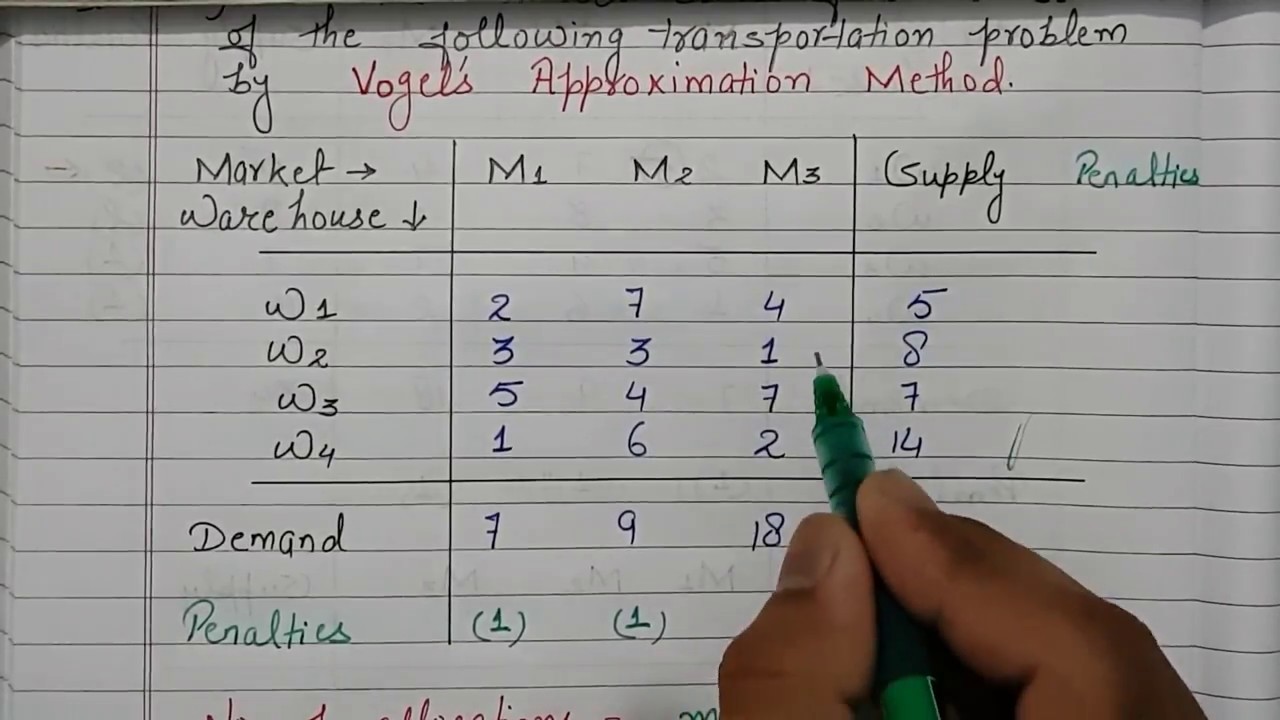 of the following transportation problem
by Vogel's Approximation Method.
Market → M1 M2 M3 Supply Penalties
Ware house ↓
W1 2 7 4 5
W2 3 3 1 8
W3 5 4 7 7
W4 1 6 2 14
Demand 7 9 18
Penalties (1) (1)
No of allocations = m